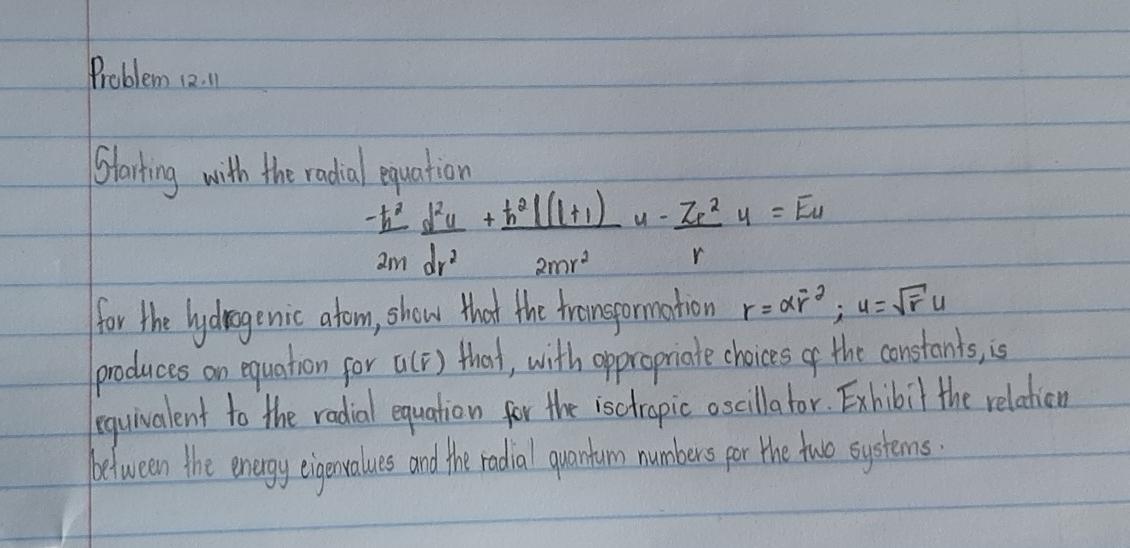 Problem 12.11
Starting with the radial equation
-ħ²/2m d²u/dr² + ħ²l(l+1)/2mr² u - Ze²/r u = Eu
for the hydrogenic atom, show that the transformation r = αr̄²; u = √r̄ u
produces an equation for u(r̄) that, with appropriate choices of the constants, is
equivalent to the radial equation for the isotropic oscillator. Exhibit the relation
between the energy eigenvalues and the radial quantum numbers for the two systems.